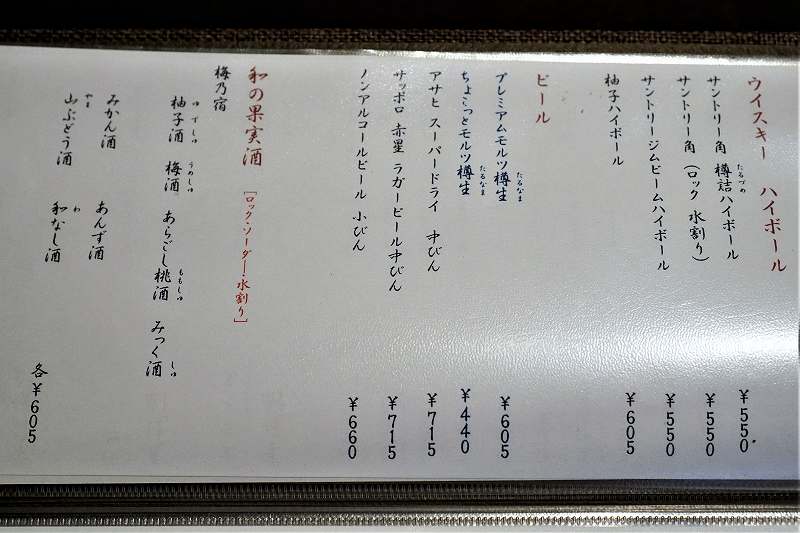 ウイスキー ハイボール
サントリー角 樽詰ハイボール ￥550
たるづめ
サントリー角（ロック 水割り） ￥550
サントリージムビームハイボール ￥550
柚子ハイボール ￥605
ビール
プレミアムモルツ樽生 ￥605
たるなま
ちょこっとモルツ樽生 ￥440
たるなま
アサヒ スーパードライ 中びん ￥715
サッポロ 赤星 ラガービール中びん ￥715
ノンアルコールビール 小びん ￥660
和の果実酒 ［ロック・ソーダー・水割り］
梅乃宿
柚子酒 梅酒 あらごし桃酒 みっく酒
ゆずしゅ うめしゅ ももしゅ しゅ
みかん酒 あんず酒
山ぶどう酒 和なし酒
やま わ
各￥605